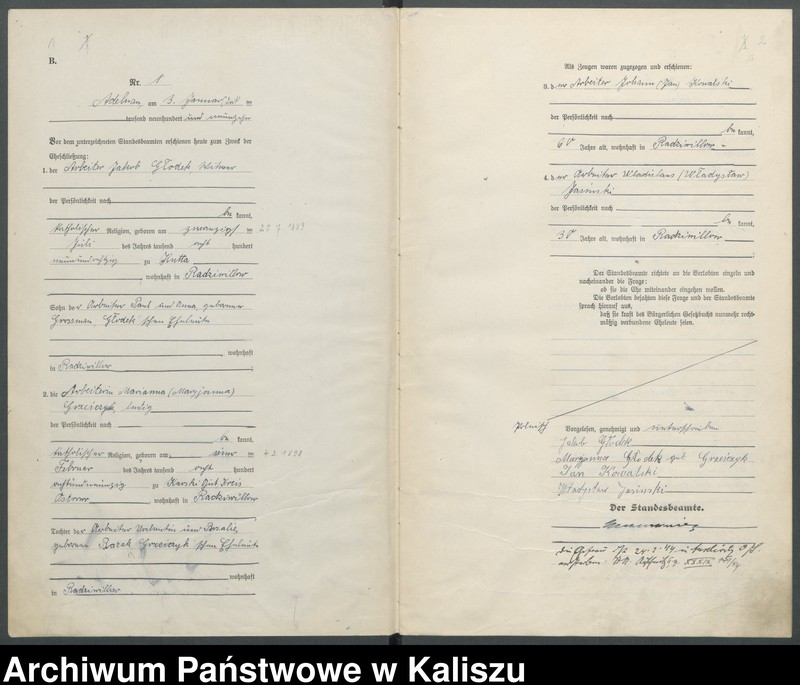 B.
Nr. 1
Adelnau, am 3. Januar
tausend neunhundert und neunzehn
Vor dem unterzeichneten Standesbeamten erschienen heute zum Zweck der
Eheschließung:
1. der Arbeiter Jakob Głodek, Witwer
der Persönlichkeit nach
be kannt,
katholischer Religion, geboren am
Juli des Jahres tausend acht hundert
zu Hutta
, wohnhaft in Radziwillow
Sohn der Arbeiter Paul und Anna geborener
Grossman, Głodek'schen Eheleute
, wohnhaft
in Radziwillow
2. die Arbeiterin Marianna (Maryjanna)
Grzeiczyk, ledig
der Persönlichkeit nach
be kannt,
katholischer Religion, geboren am vier
Februar des Jahres tausend acht hundert
achtundneunzig zu Karski Gut Kreis
, wohnhaft in Radziwillow
4 2 1898
Tochter der Arbeiter Valentin und Rosalie
geborene Grzeiczyk'schen Eheleute
wohnhaft
in Radziwillow
2
Als Zeugen waren zugezogen und erschienen:
3. der Arbeiter Johann (Jan) Kowalski
der Persönlichkeit nach
be kannt,
60 Jahre alt, wohnhaft in Radziwillow
4. der Arbeiter Wladislaus (Władysław)
Jasinski
der Persönlichkeit nach
be kannt,
30 Jahre alt, wohnhaft in Radziwillow
Der Standesbeamte richtete an die Verlobten einzeln und
nacheinander die Frage:
ob sie die Ehe miteinander eingehen wollen.
Die Verlobten bejahten diese Frage und der Standesbeamte
sprach hierauf aus,
daß sie kraft des Bürgerlichen Gesetzbuchs nunmehr recht-
mäßig verbundene Eheleute seien.
Vorgelesen, genehmigt und unterschrieben
Jakób Głodek
Maryanna Głodek geb. Grzeiczyk
Jan Kowalski
Władysław Jasinski
Der Standesbeamte.
Die Ehefrau
Archiwum Państwowe w Kaliszu